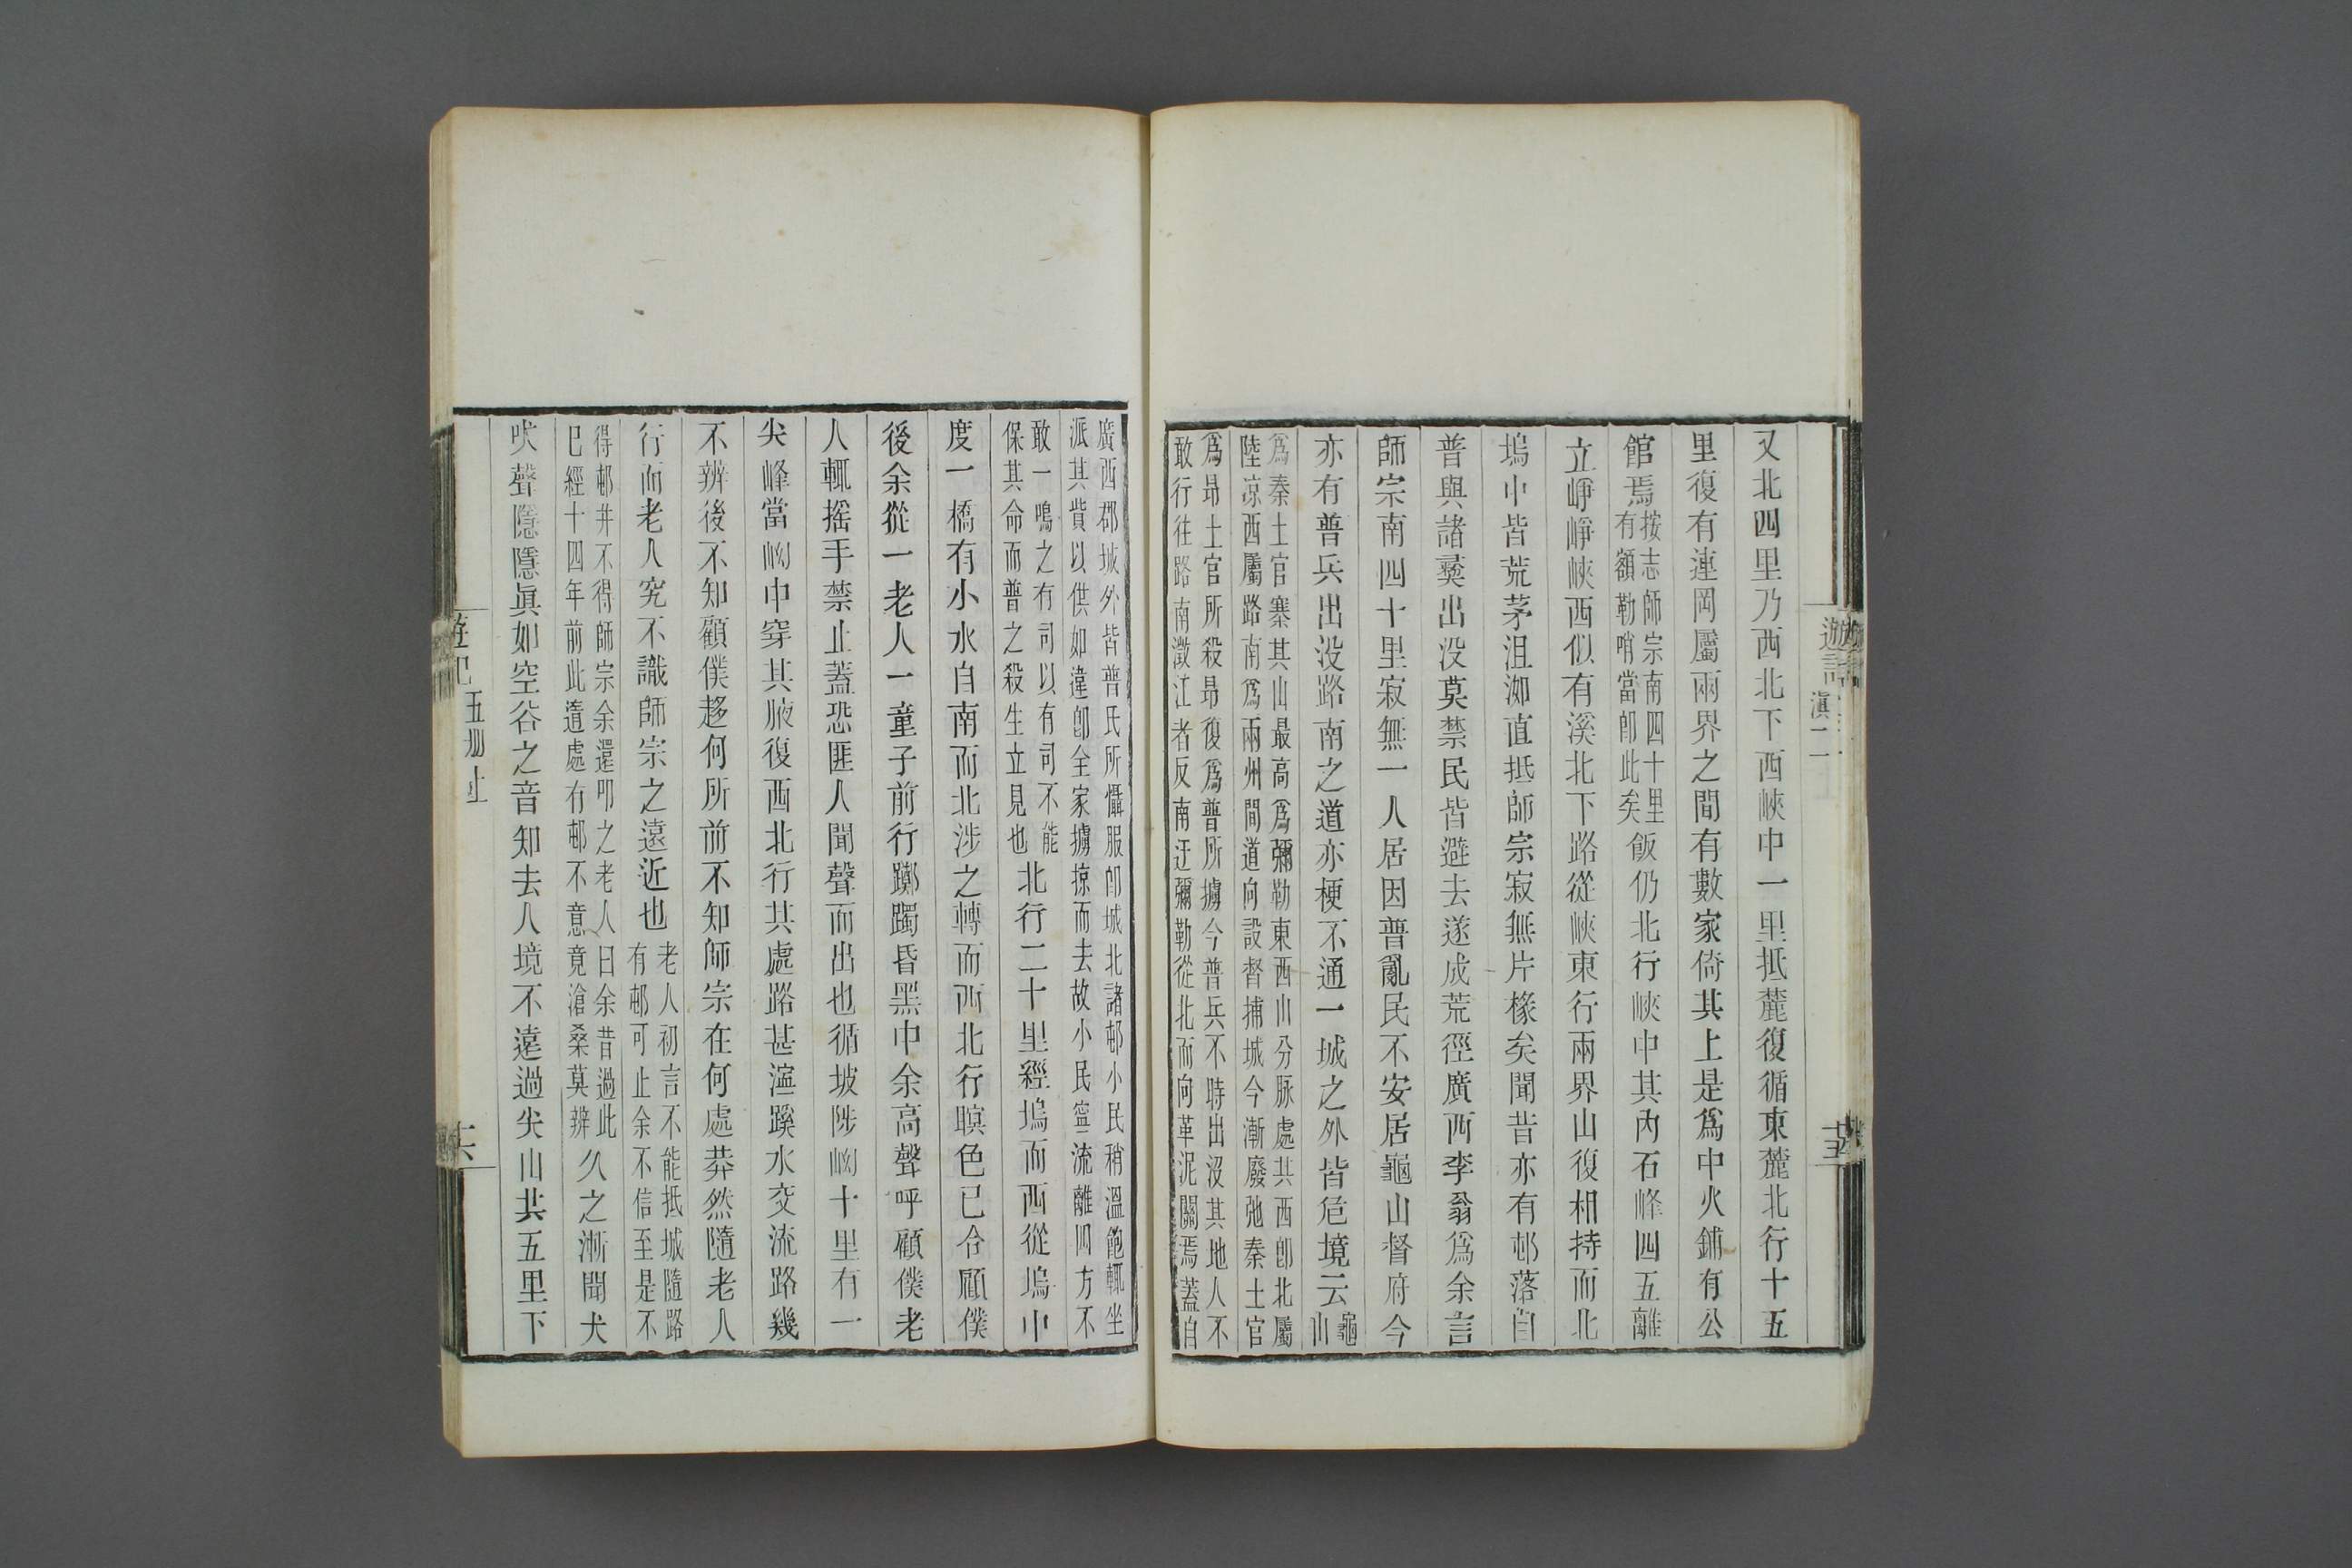 遊記
滇二
十五
又北四里乃西北下西峽中一里抵麓復循東麓北行十五
里復有連岡屬兩界之間有數家倚其上是爲中火鋪有公
館焉按志師宗南四十里
有額勒哨當卽此矣飯仍北行峽中其內石峰四五離
立崢崢峽西似有溪北下路從峽東行兩界山復相持而北
塢中皆荒茅沮洳直抵師宗寂無片椽矣聞昔亦有邨落自
普與諸彞出没莫禁民皆避去遂成荒徑廣西李翁爲余言
師宗南四十里寂無一人居因普亂民不安居龜山督府今
亦有普兵出没路南之道亦梗不通一城之外皆危境云龜
山
爲秦土官寨其山最高爲彌勒東西山分脉處其西卽北屬
陸凉西屬路南爲兩州間道向設督捕城今漸廢弛秦土官
爲昂土官所殺昂復爲普所擄今普兵不時出没其地人不
敢行往路南澂江者反南迂彌勒從北而向革泥關焉蓋自
廣西郡城外皆普氏所懾服卽城北諸邨小民稍溫飽輒坐
派其貲以供如違卽全家擄掠而去故小民寧流離四方不
敢一鳴之有司以有司不能
保其命而普之殺生立見也北行二十里經塢而西從塢中
度一橋有小水自南而北涉之轉而西北行暝色已合顧僕
後余從一老人一童子前行躑躅昏黑中余高聲呼顧僕老
人輒摇手禁止蓋恐匪人聞聲而出也循坡陟峒十里有一
尖峰當峒中穿其腋復西北行其處路甚濘蹊水交流路幾
不辨後不知顧僕趍何所前不知師宗在何處莽然隨老人
行而老人究不識師宗之遠近也老人初言不能抵城隨路
有邨可止余不信至是不
得邨并不得師宗余還叩之老人曰余昔過此
已經十四年前此遺處有邨不意竟滄桑莫辨久之漸聞犬
吠聲隱隱眞如空谷之音知去人境不遠過尖山共五里下
遊記
五册止
十六